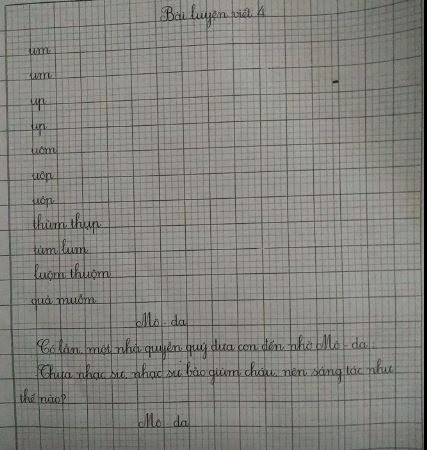 Bài luyện viết 4
um
um
up
up
uôm
uôp
uôp
thùm thụp
tùm lum
luộm thuộm
quả muỗm
Mô - da
Có lần, một nhà quyền quý đưa con đến nhờ Mô - da:
Thưa nhạc sư, nhạc sư bảo giùm cháu, nên sáng tác như
thế nào?
Mô da